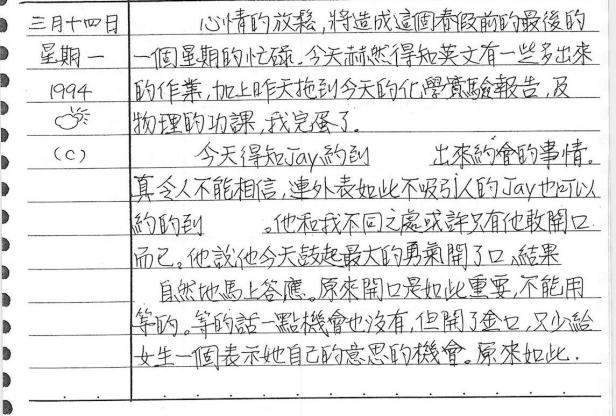 三月十四日 心情的放鬆,將造成這個春假前的最後的
星期一 一個星期的忙碌.今天赫然得知英文有一些多出來
1994 的作業,加上昨天拖到今天的化學實驗報告,及
物理的功課,我完蛋了.
(C) 今天得知Jay約到 出來約會的事情。
真令人不能相信,連外表如此不吸引人的Jay也可以
約的到 。他和我不同之處或許只有他敢開口
而已。他說他今天鼓起最大的勇氣開了口,結果
自然地馬上答應。原來開口是如此重要,不能用
等的。等的話一點機會也沒有,但開了金口,又少給
女生一個表示她自己的意思的機會。原來如此.